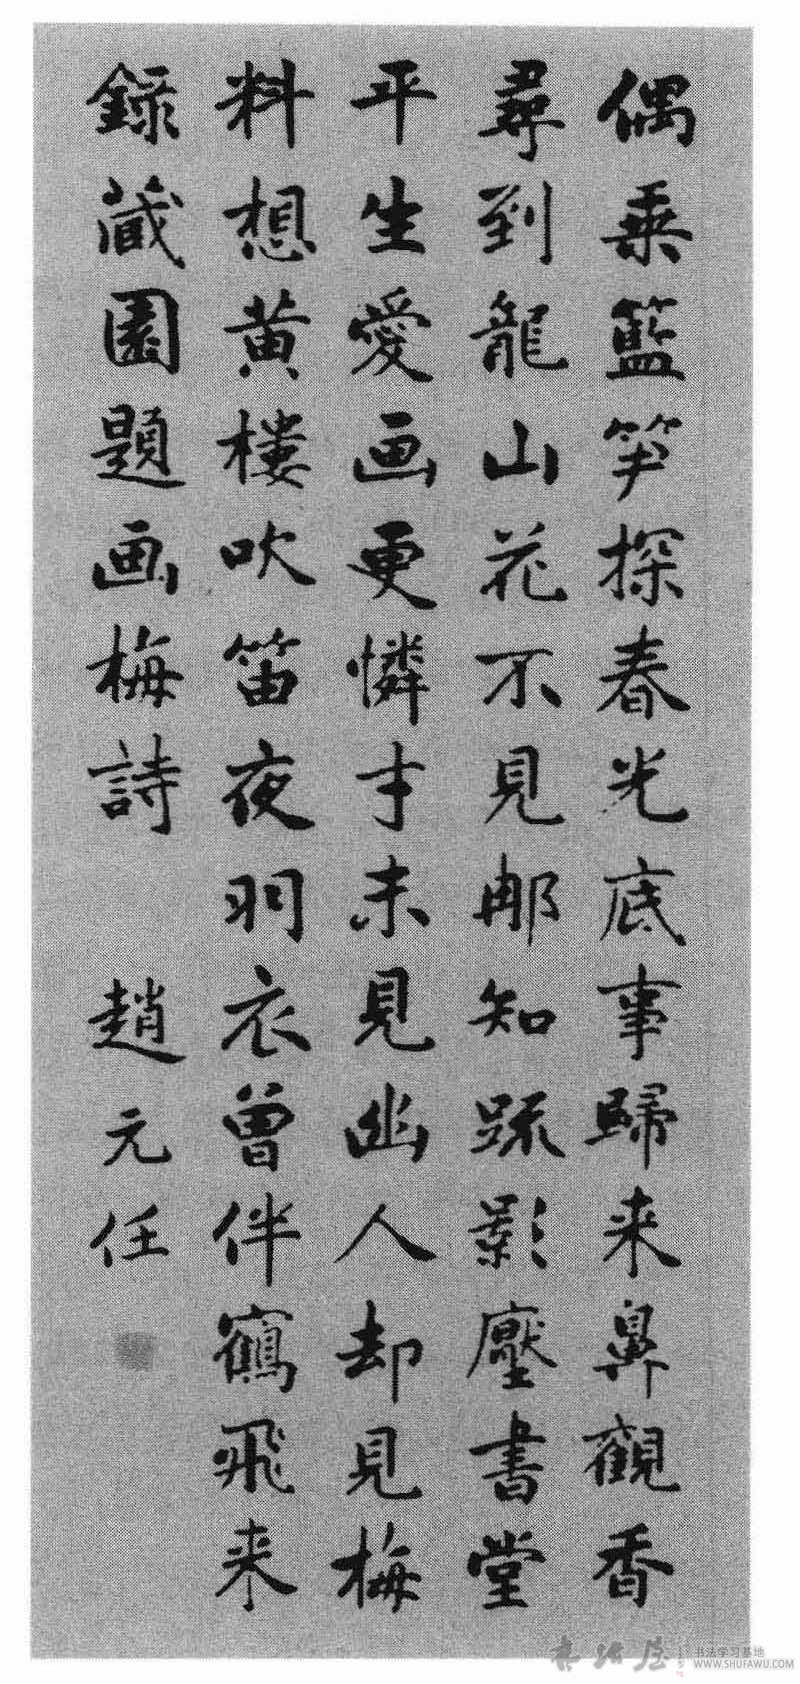 偶乘籃笋探春光底事歸来鼻觀香
尋到龍山花不見那知踈影壓書堂
平生愛画更憐才未見幽人却見梅
料想黄樓吹笛夜羽衣曾伴鶴飛来
錄藏園題画梅詩 趙元任
书法屋
书法学习基地
WWW.SHUFAWU.COM